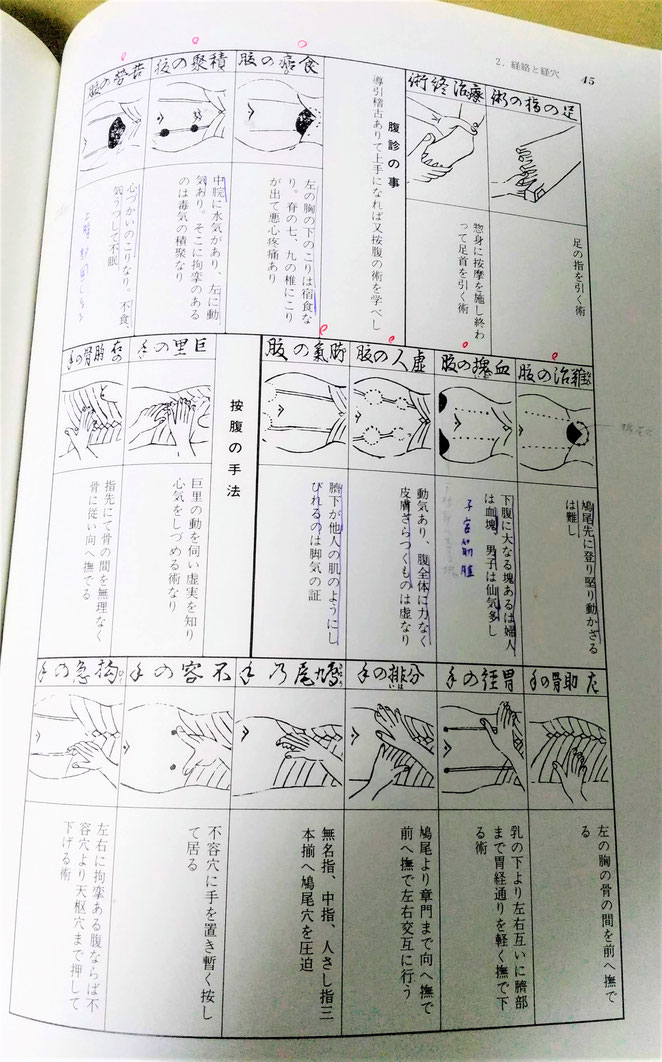 2. 経絡と経穴
45
足の指の術
足の指を引く術
療治終術
惣身に按摩を施し終わ
って足首を引く術
腹診の事
導引稽古ありて上手になれば又按腹の術を学べし
食の腹
左の胸の下のこりは宿食な
り。脊の七、九の椎にこり
が出て悪心疼痛あり
積聚の腹
中脘に水気があり、左に動
気あり。そこに拘攣のある
のは毒気の積聚なり
苦労の腹
心づかいのこりなり。不食、
気うつして不眠
難治の腹
鳩尾先に登り堅り動かざる
は難し
血塊の腹
下腹に大なる塊あるは婦人
は血塊、男子は仙気多し
子宮筋腫
虚人の腹
動気あり、腹全体に力なく
皮膚ざらつくものは虚なり
脚氣の腹
臍下が他人の肌のようにし
びれるのは脚気の証
按腹の手法
巨里の手
巨里の動を伺い虚実を知り
心気をしづめる術なり
右の肋骨の手
指先にて骨の間を無理なく
骨に従い向へ撫でる
左肋骨の手
左の胸の骨の間を前へ撫で
る
胃経の手
乳の下より左右互いに臍部
まで胃経通りを軽く撫で下
る術
分排の手
鳩尾より章門まで向へ撫で
前へ撫で左右交互に行う
鳩尾乃手
無名指、中指、人さし指三
本揃へ鳩尾穴を圧迫
不容の手
不容穴に手を置き暫く按し
て居る
拘急の手
左右に拘攣ある腹ならば不
容穴より天枢穴まで押して
下げる術